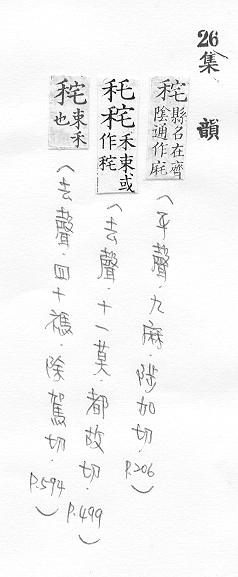 26
集韻
秅 縣名在齊
陰通作庛
(平聲.九麻.陟加切.P.206)
秅秺 禾束或
作秺
(去聲.十一莫.都故切.P.499)
秺 束禾
也
(去聲.四十禡.除駕切.P.594)